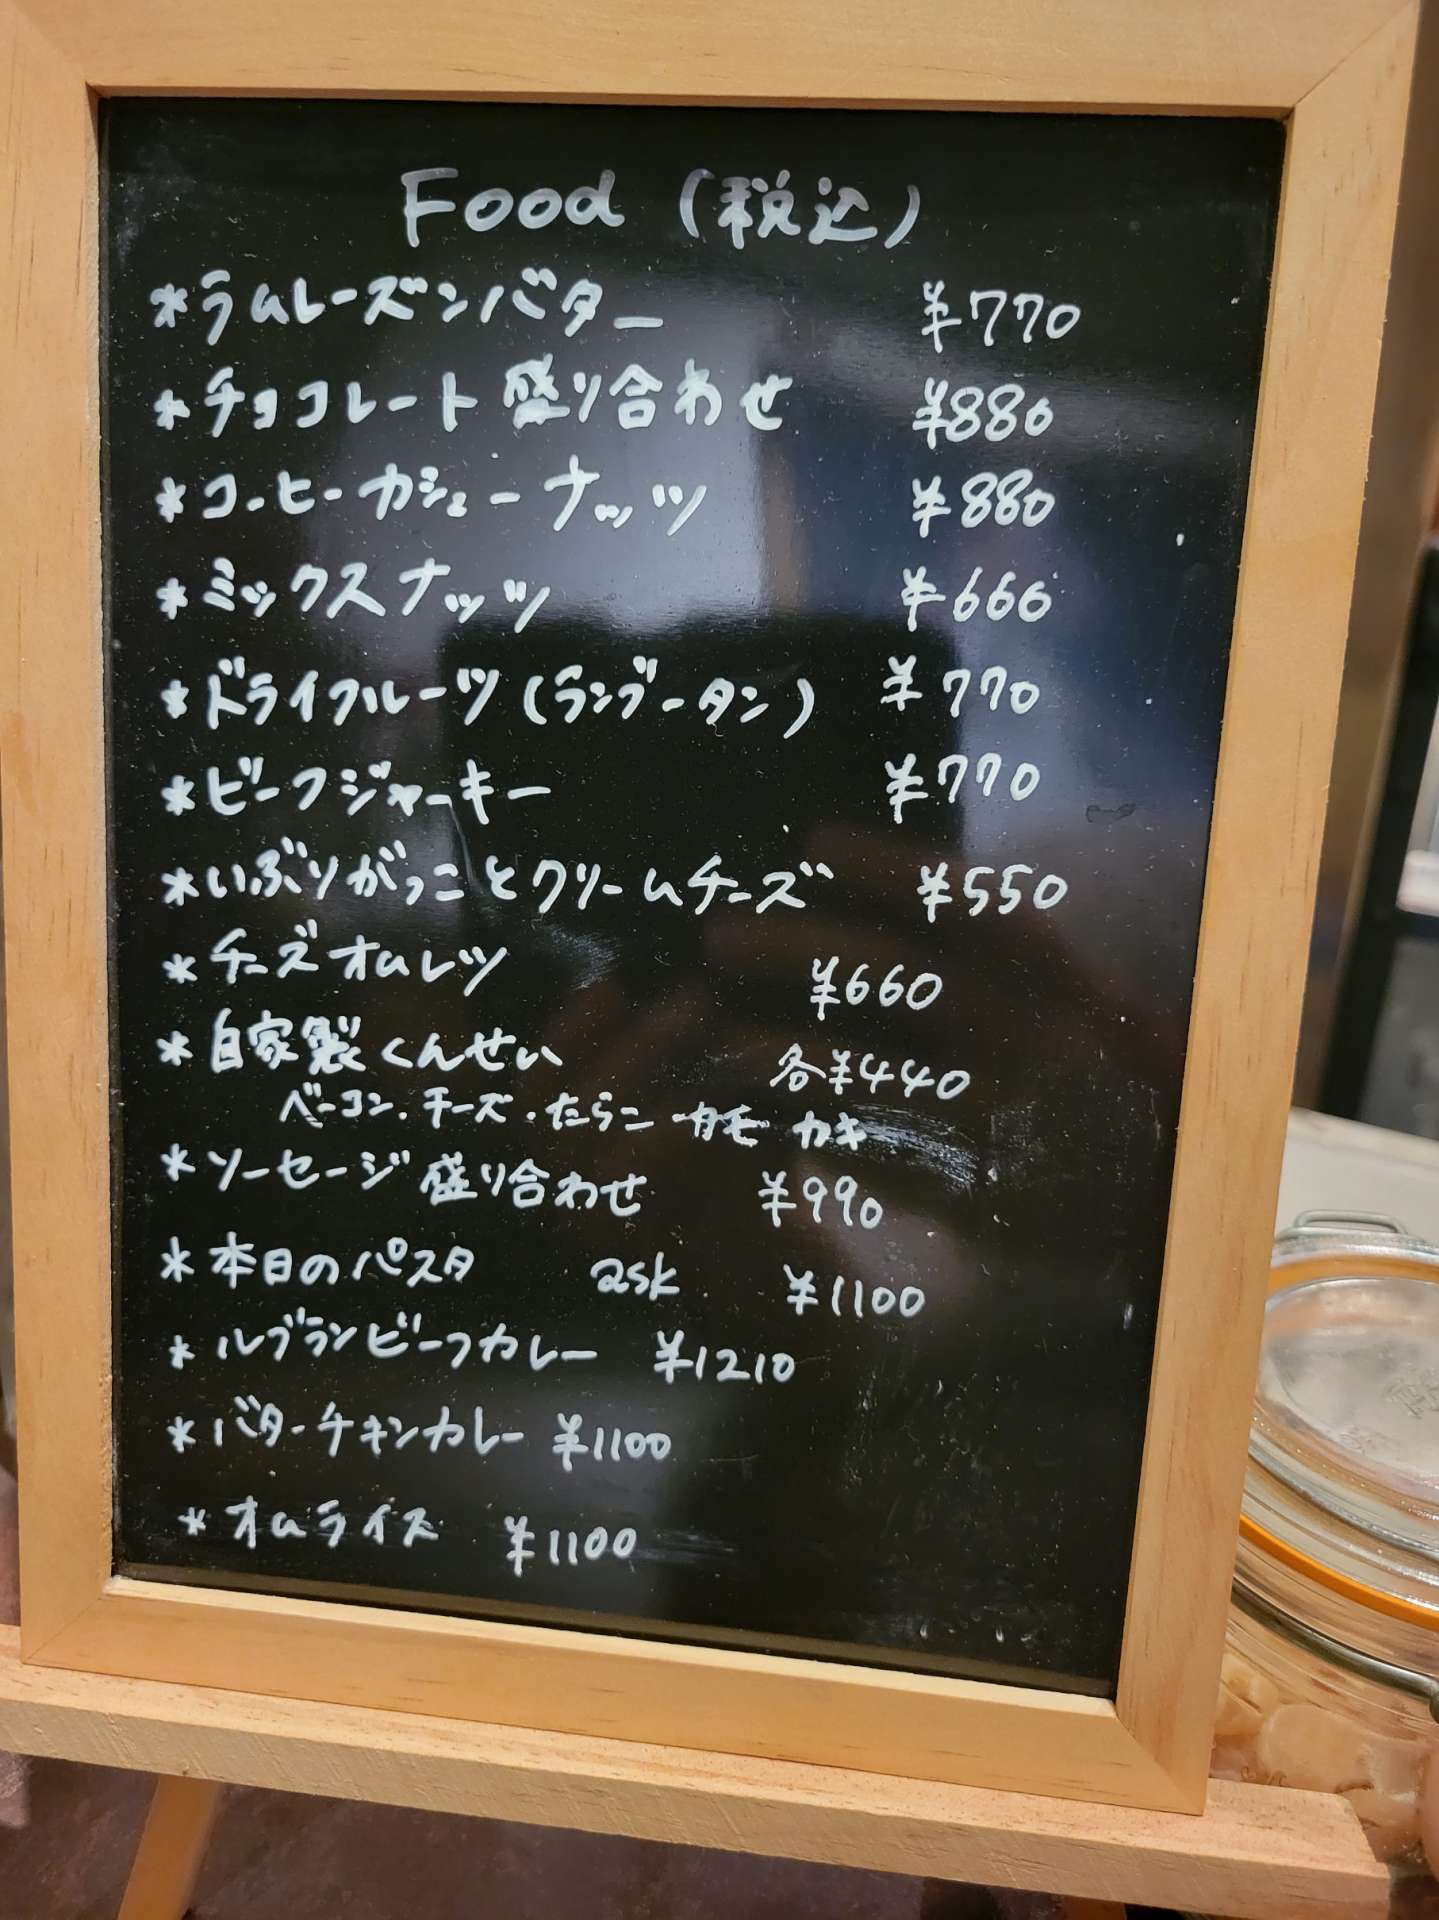 Food (税込)
*ラムレーズンバター ¥770
*チョコレート 盛り合わせ ¥880
*コーヒーカシューナッツ ¥880
*ミックスナッツ ¥660
*ドライフルーツ(ランブータン) ¥770
*ビーフジャーキー ¥770
*いぶりがっことクリームチーズ ¥550
*チーズオムレツ ¥660
*自家製くんせい 各¥440
ベーコン・チーズ・たらこ カモ カキ
*ソーセージ 盛り合わせ ¥990
*本日のパスタ ask ¥1100
*ルブランビーフカレー ¥1210
*バターチキンカレー ¥1100
*オムライス ¥1100